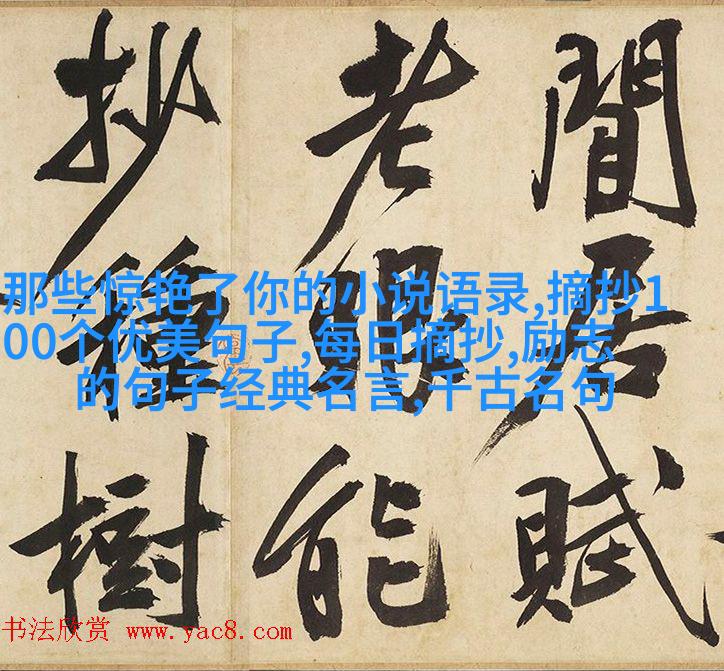 閒居賦
老眼能
抄種樹
那些惊艳了你的小说语录,摘抄1
00个优美句子,每日摘抄,励志
的句子经典名言,千古名句
书法欣赏 www.yac8.com